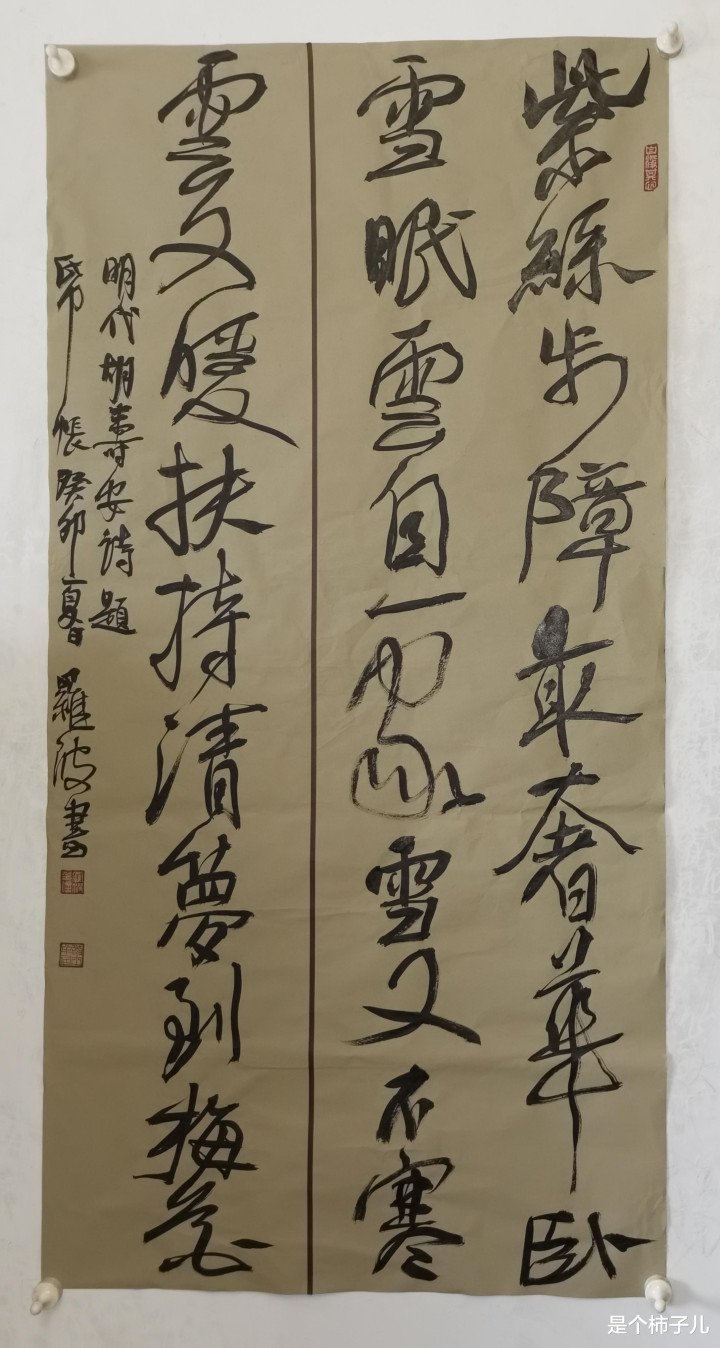 紫絲步障最奢華卧
雪眠雲自一家雪又不寒
雲又暖扶持清夢到梅花
明代胡壽安詩題
帋帳癸卯夏日羅波書
是个柿子儿